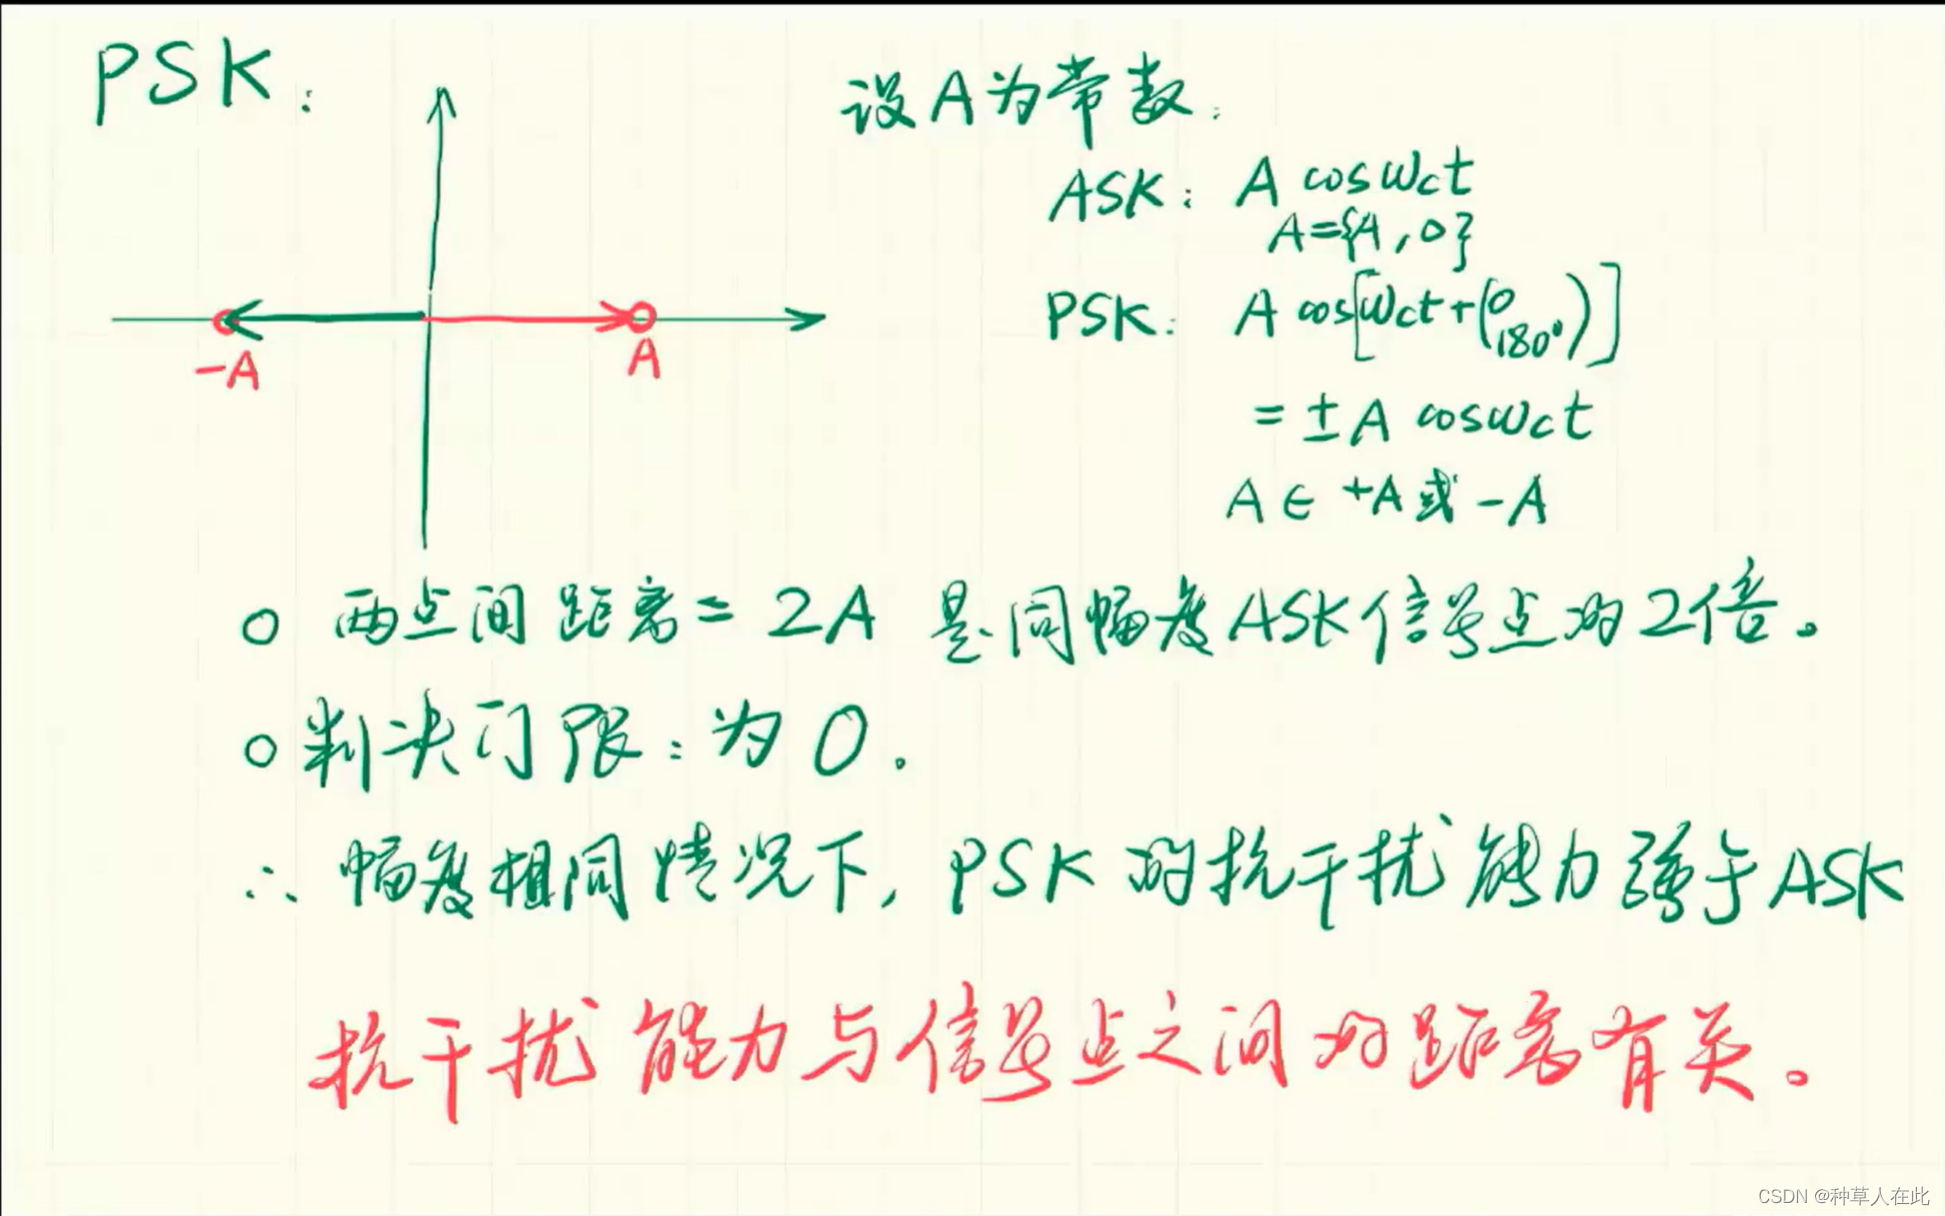 PSK:
设A为常数:
ASK: A cosωct
A={A,0}
PSK: A cos[ωct+(0 180°)]
= ±A cosωct
A∈ +A或-A
-A
A
○ 两点间距离=2A 是同幅度ASK信号点的2倍。
○ 判决门限:为0.
∴ 幅度相同情况下,PSK的抗干扰能力强于ASK
抗干扰能力与信号点之间的距离有关。
CSDN @种草人在此